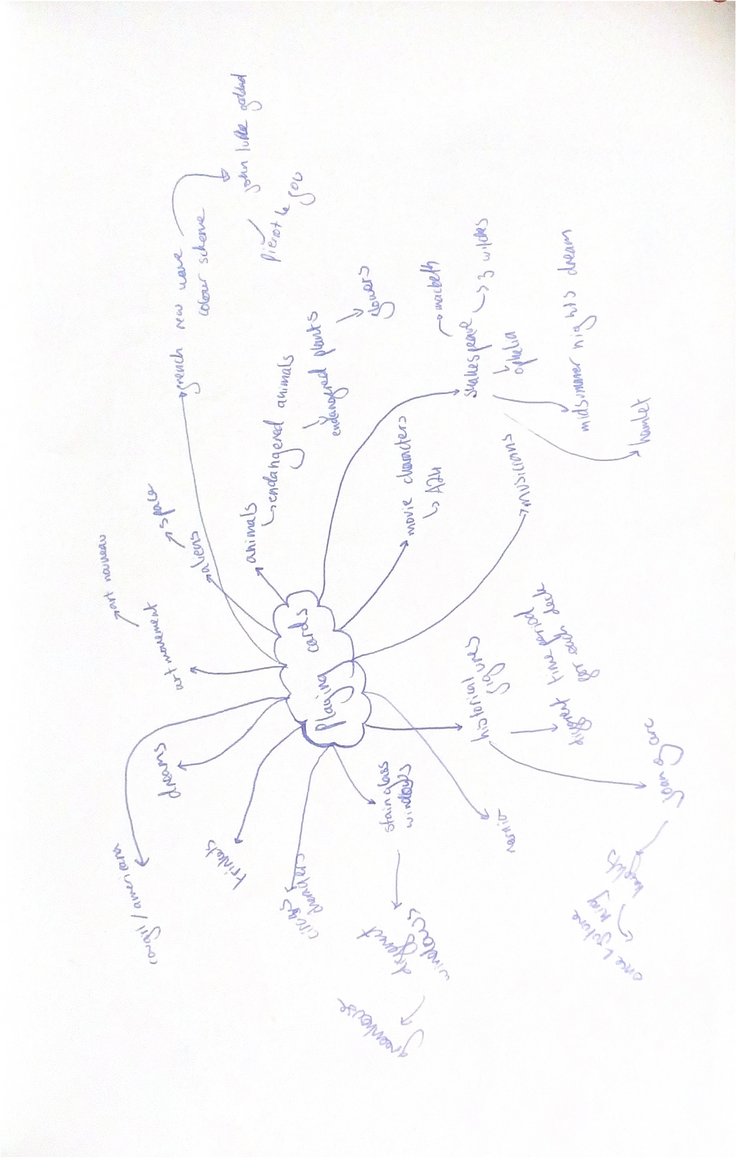 playing
cards
cowgirl / americana
art movement
art nouveau
dreams
trinkets
aliens
space
french new wave
colour scheme
pierot le fou
animals
endangered animals
endangered plants
flowers
circus
stain glass
windows
different
windows
greenhouse
movie characters
A24
shakespeare
macbeth
3 witches
ophelia
midsummer nights dream
hamlet
musicians
narnia
historical
figures
different time period
for each deck
joan of arc
knights
king